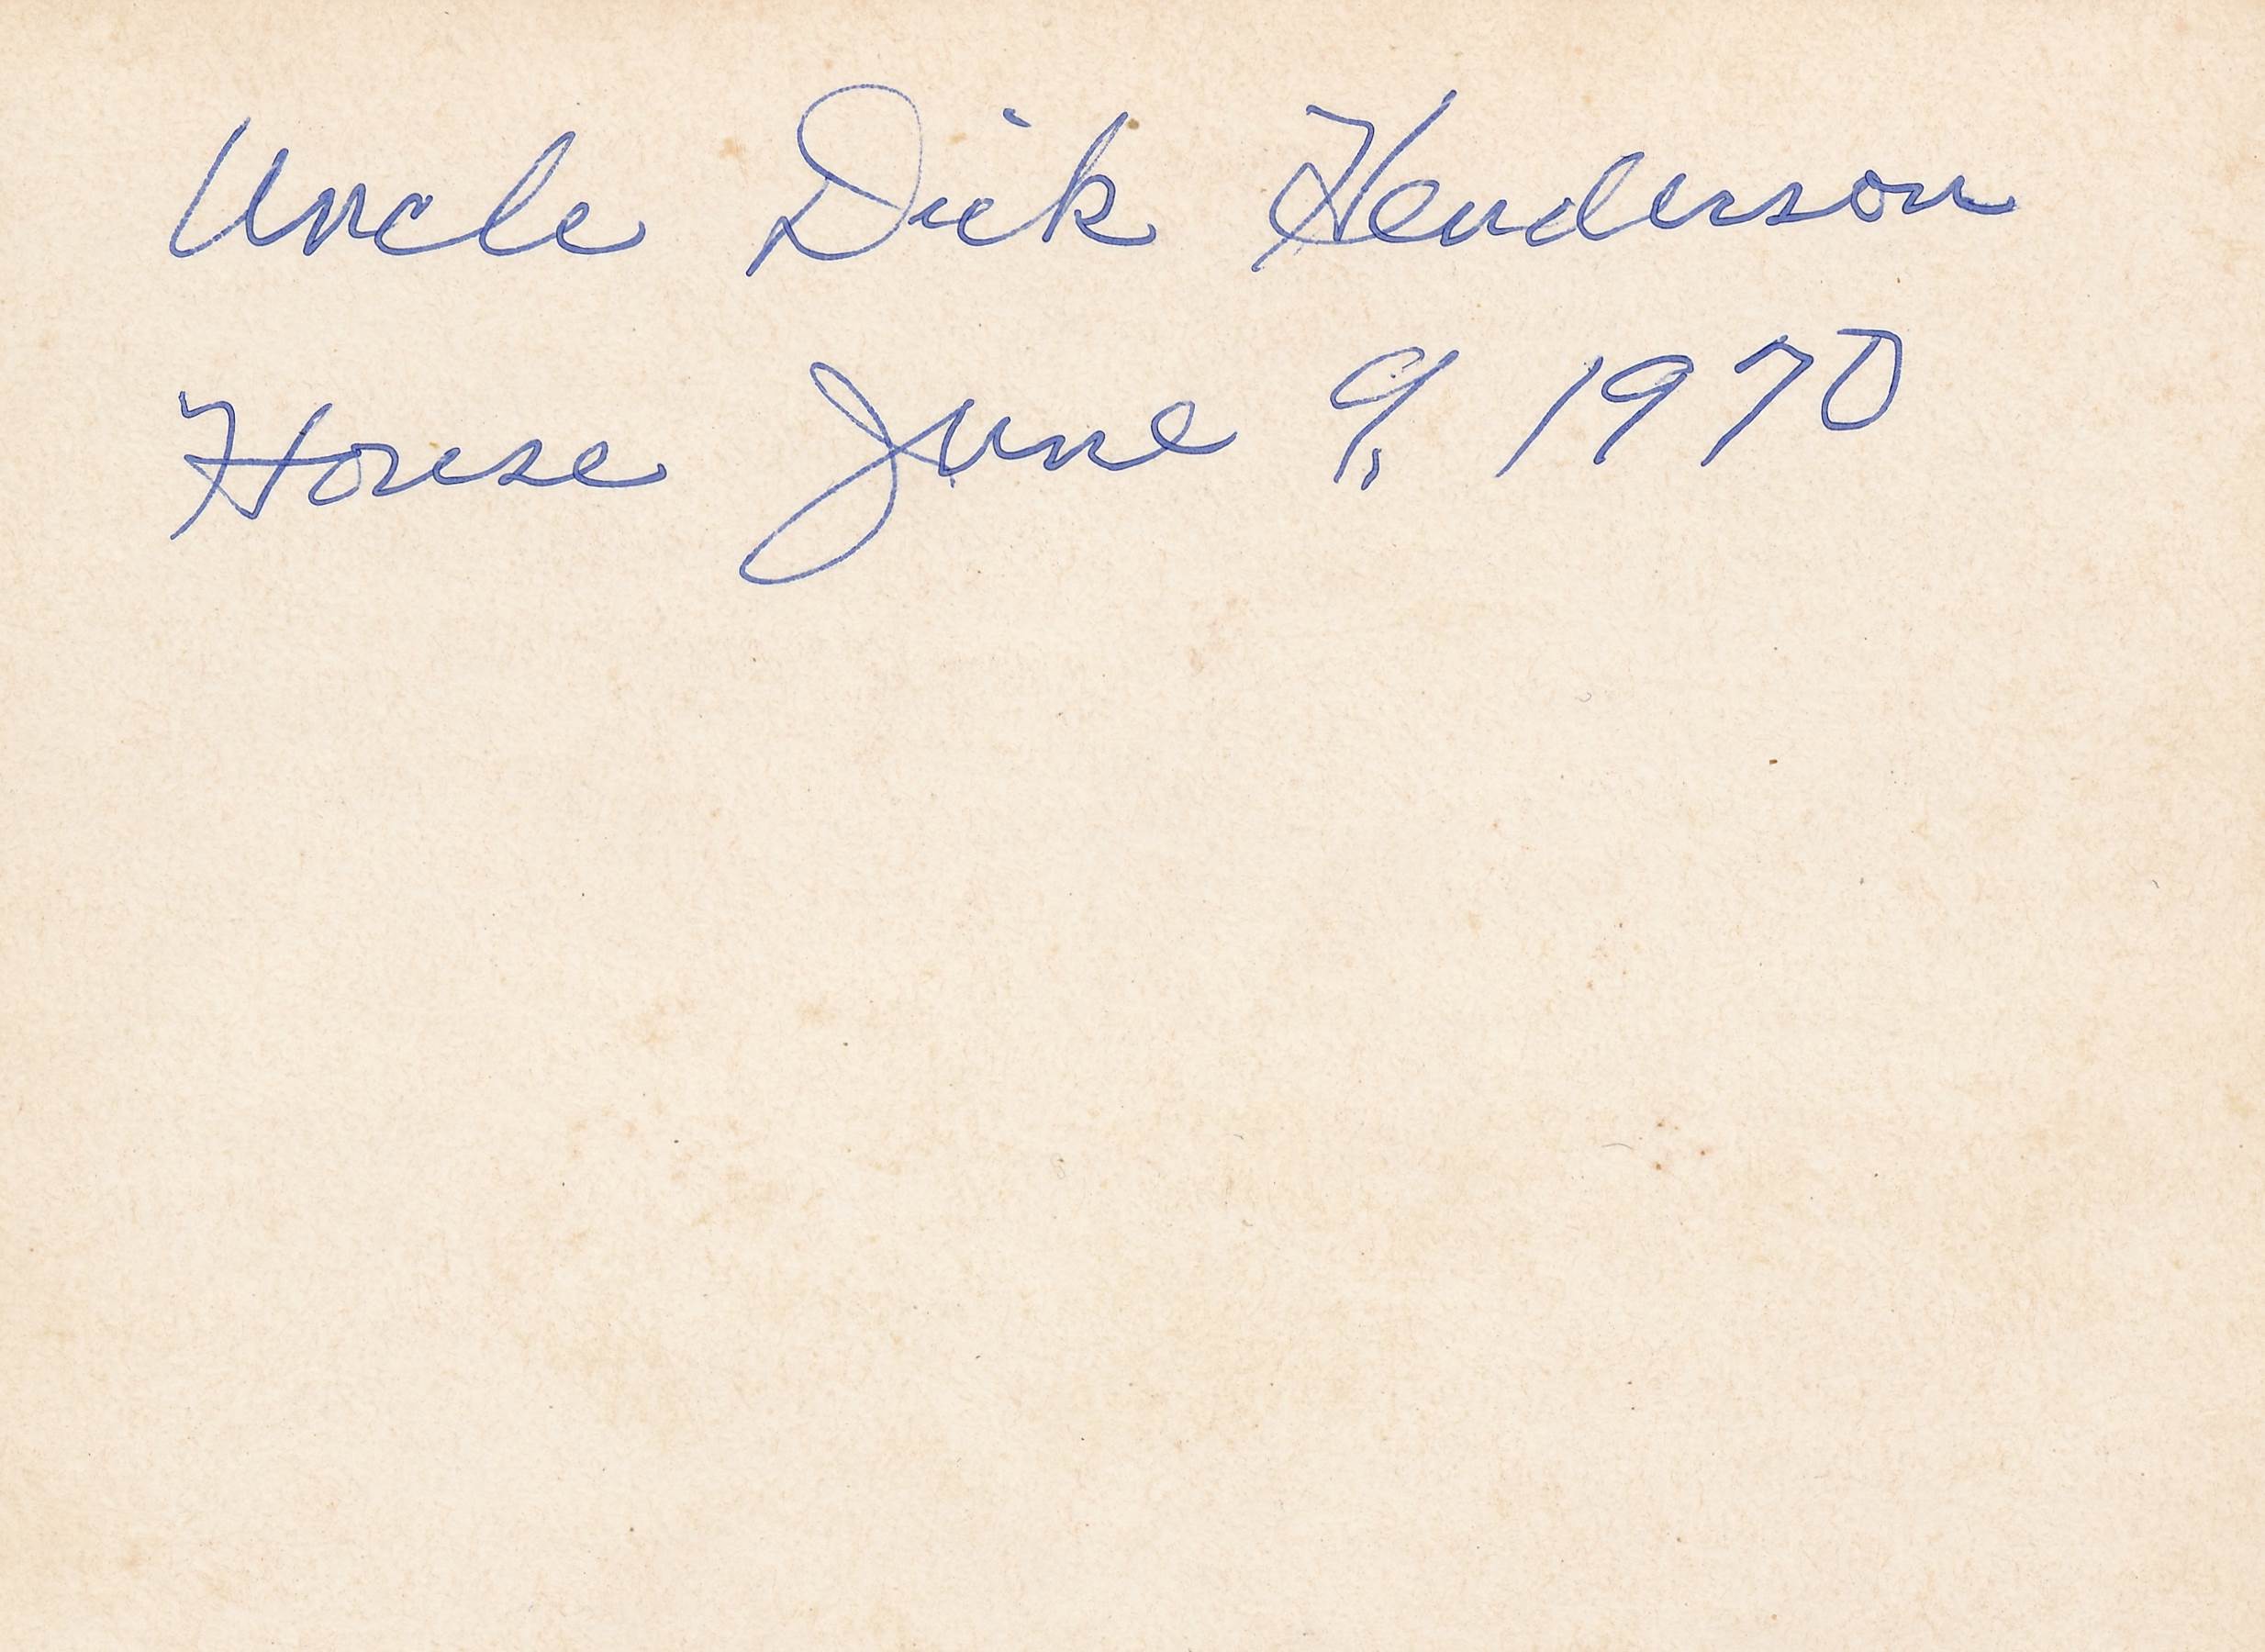 Uncle Dick Henderson
House June 9, 1970